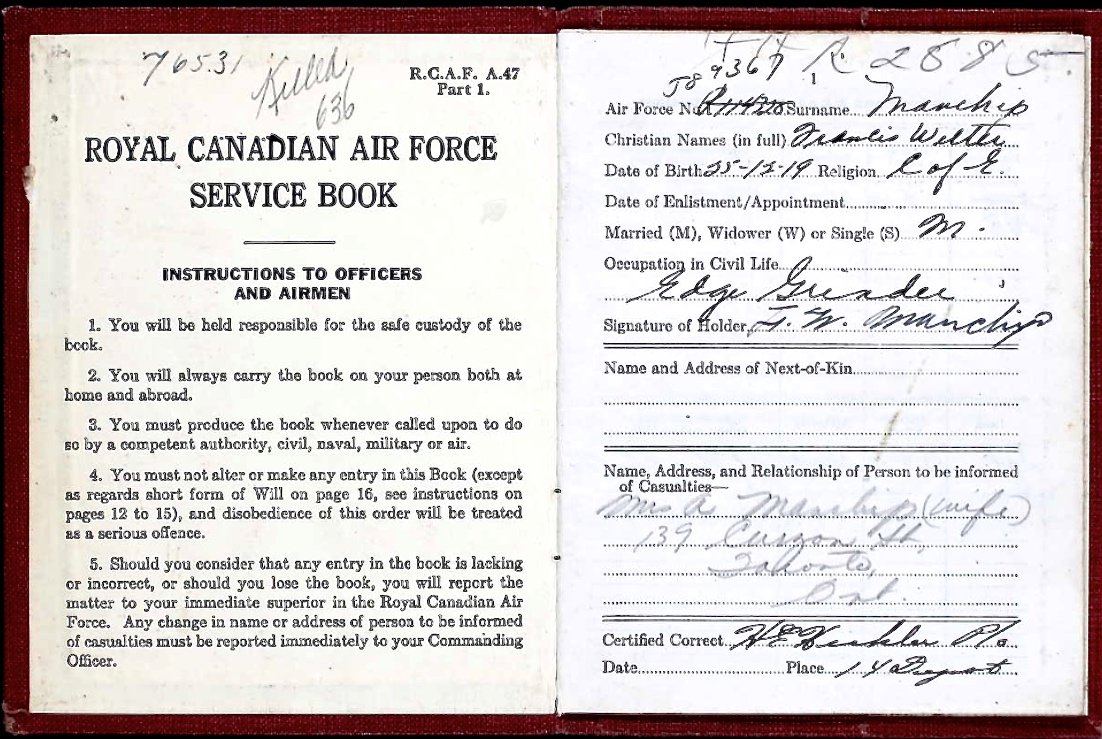 76531
Killed
636
R.C.A.F. A.47
Part 1.
ROYAL CANADIAN AIR FORCE
SERVICE BOOK
INSTRUCTIONS TO OFFICERS
AND AIRMEN
1. You will be held responsible for the safe custody of the
book.
2. You will always carry the book on your person both at
home and abroad.
3. You must produce the book whenever called upon to do
so by a competent authority, civil, naval, military or air.
4. You must not alter or make any entry in this Book (except
as regards short form of Will on page 16, see instructions on
pages 12 to 15), and disobedience of this order will be treated
as a serious offence.
5. Should you consider that any entry in the book is lacking
or incorrect, or should you lose the book, you will report the
matter to your immediate superior in the Royal Canadian Air
Force. Any change in name or address of person to be informed
of casualties must be reported immediately to your Commanding
Officer.
R 2885
J89367
1
Air Force No. Surname Manchip
Christian Names (in full) Francis Walter
Date of Birth 25-12-19 Religion C of E.
Date of Enlistment/Appointment
Married (M), Widower (W) or Single (S) M.
Occupation in Civil Life
Edge Grinder
Signature of Holder, F. W. Manchip
Name and Address of Next-of-Kin
Name, Address, and Relationship of Person to be informed
of Casualties—
Mrs A Manchip (wife)
139 Curzon St,
Toronto,
Ont.
Certified Correct P/O
Date Place 14 Depot